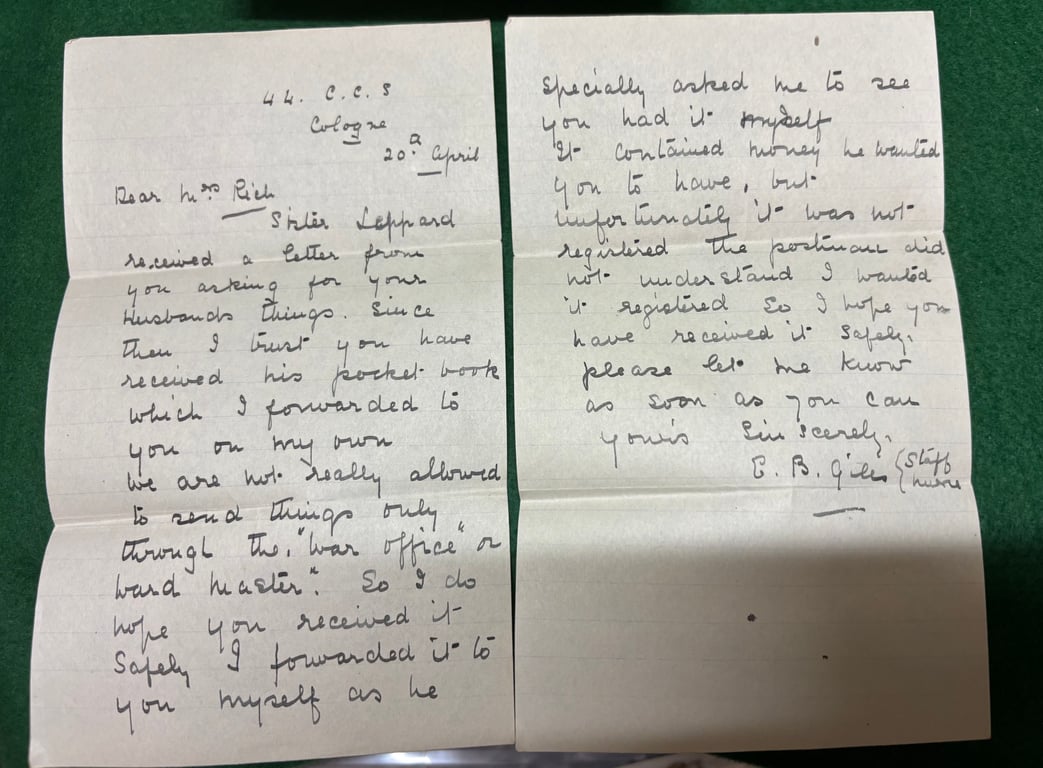 44. C.C.S
Cologne
20th April
Dear Mrs Rich
Sister Leppard
received a letter from
you asking for your
Husbands things. Since
then I trust you have
received his pocket book
which I forwarded to
you on my own
We are not really allowed
to send things only
through the "War office" or
Ward Master". So I do
hope you received it
Safely I forwarded it to
you myself as he
Specially asked me to see
you had it myself
It contained money he wanted
you to have, but
unfortunately it was not
registered the postman did
not understand I wanted
it registered So I hope you
have received it safely.
please let me know
as soon as you can
yours Sincerely.
E. B. Giles (Staff
nurse